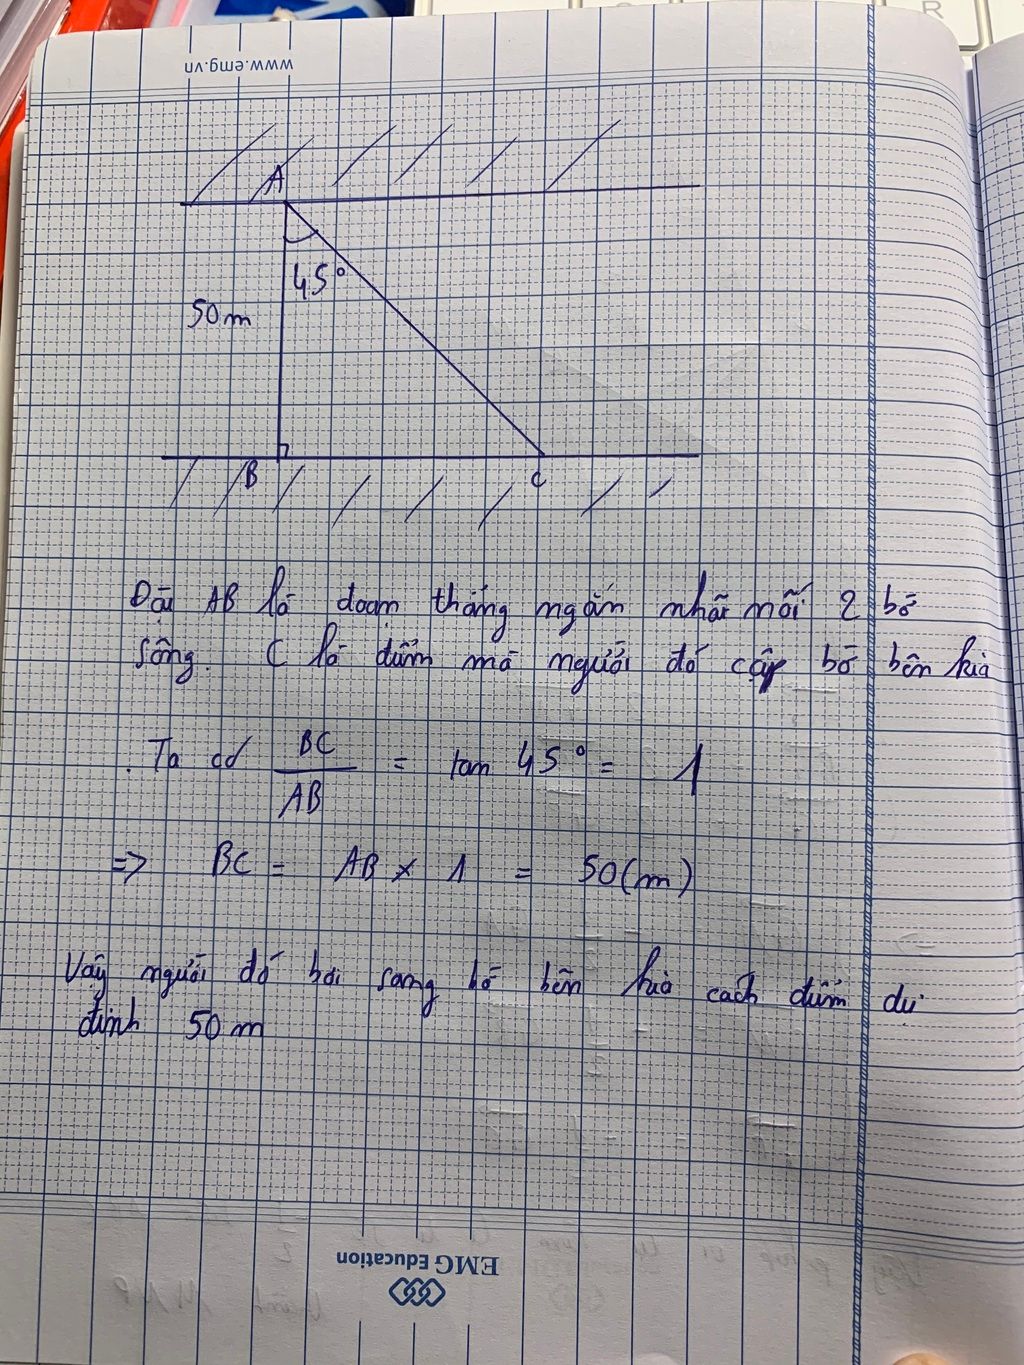 www.emg.vn
A
45°
50m
B
C
Đặt AB là đoạn thẳng ngắn nhất nối 2 bờ
sông. C là điểm mà người đó cập bờ bên kia
Ta có BC/AB = tan 45° = 1
=> BC = AB × 1 = 50(m)
Vậy người đó bơi sang bờ bên kia cách điểm dự
định 50m
EMG Education